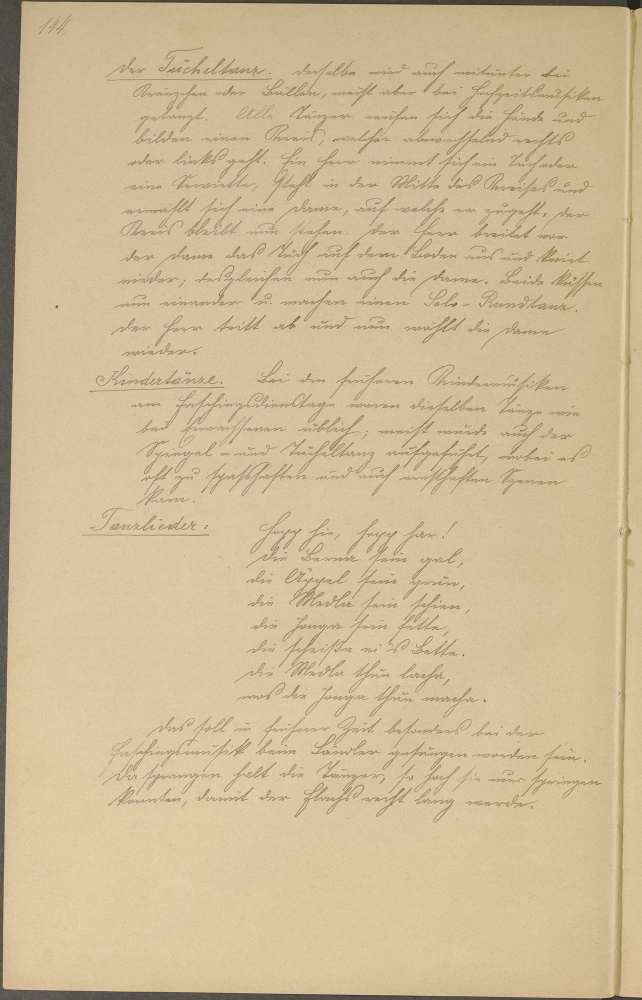 144.
Der Tücheltanz. Derselbe wird auch mitunter bei
Kränzchen oder Bällen, meist aber bei Hochzeitsmusiken
getanzt. Alle Tänzer reichen sich die Hände und
bilden einen Kreis, welcher abwechselnd rechts
oder links geht. Ein Herr nimmt sich ein Tuch oder
eine Serviette, steht in der Mitte des Kreises und
erwählt sich eine Dame, auf welche er zugeht. Der
Kreis bleibt nun stehen. Der Herr breitet vor
der Dame das Tuch auf dem Boden aus und kniet
nieder; desgleichen nun auch die Dame. Beide küssen
nun einander u. machen einen Solo-Rundtanz.
Der Herr tritt ab und nun wählt die Dame
wieder.
Kindertänze. Bei den früheren Kindermusiken
am Faschingsdienstage waren dieselben Tänze wie
bei Erwachsenen üblich; meist wurde auch der
Spengel- und Tücheltanz aufgeführt, wobei es
oft zu spasshaften und auch ernsthaften Szenen
kam.
Tanzlieder:
Hopp hie, hopp har!
Die Berna sein gal,
die Äppel sein grün,
die Medla sein schien,
die Jonga sein fette,
die scheißa ei's Bette.
Die Medla thun lacha,
wos die Jonga thun macha.
Das soll in früherer Zeit besonders bei der
Faschingsmusik beim Ländler gesungen worden sein.
Da sprangen halt die Tänzer, so hoch sie nur springen
konnten, damit der Flachs recht lang werde.